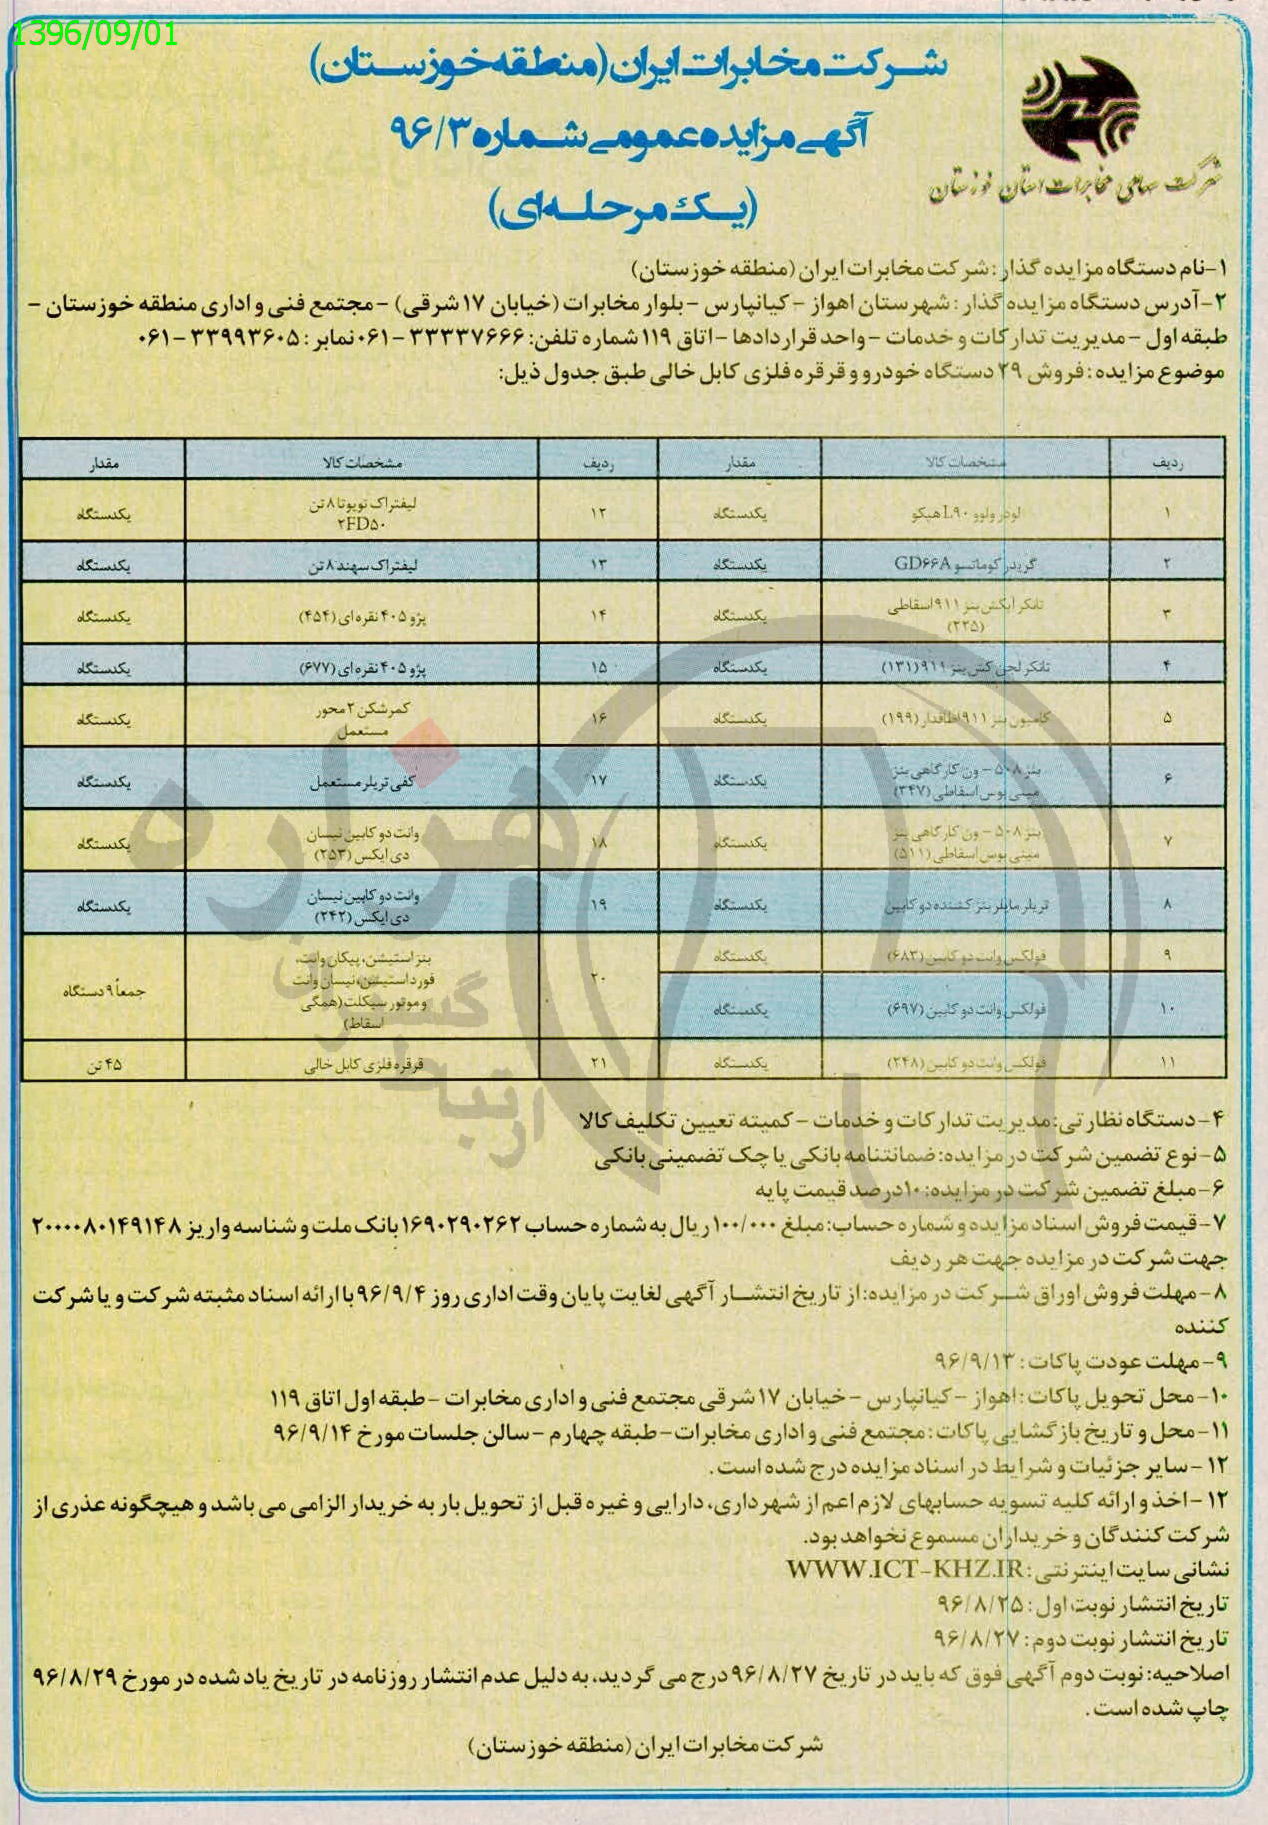 1396/09/01
شرکت مخابرات ایران (منطقه خوزستان)
آگهی مزایده عمومی شماره ۹۶/۳
(یک مرحله‌ای)
شرکت سهامی مخابرات استان خوزستان
۱- نام دستگاه مزایده گذار: شرکت مخابرات ایران (منطقه خوزستان)
۲- آدرس دستگاه مزایده گذار: شهرستان اهواز - کیانپارس - بلوار مخابرات (خیابان ۱۷ شرقی) - مجتمع فنی و اداری منطقه خوزستان -
طبقه اول - مدیریت تدارکات و خدمات - واحد قراردادها - اتاق ۱۱۹ شماره تلفن: ۳۳۳۳۷۶۶۶ - ۰۶۱ نمابر: ۳۳۹۹۳۶۰۵ - ۰۶۱
موضوع مزایده: فروش ۲۹ دستگاه خودرو و قرقره فلزی کابل خالی طبق جدول ذیل:
ردیف مشخصات کالا مقدار ردیف مشخصات کالا مقدار
۱ لودر ولوو L۹۰ هپکو یکدستگاه ۱۲ لیفتراک تویوتا ۸ تن
۲FD۵۰ یکدستگاه
۲ گریدر کوماتسو GD۶۶A یکدستگاه ۱۳ لیفتراک سهند ۸ تن یکدستگاه
۳ تانکر آبکش بنز ۹۱۱ اسقاطی
(۲۲۵) یکدستگاه ۱۴ پژو ۴۰۵ نقره‌ای (۴۵۴) یکدستگاه
۴ تانکر لجن کش بنز ۹۱۱ (۱۳۱) یکدستگاه ۱۵ پژو ۴۰۵ نقره‌ای (۶۷۷) یکدستگاه
۵ کامیون بنز ۹۱۱ اطاقدار (۱۹۹) یکدستگاه ۱۶ کمرشکن ۲ محور
مستعمل یکدستگاه
۶ بنز ۵۰۸ - ون کارگاهی بنز
مینی بوس اسقاطی (۳۴۷) یکدستگاه ۱۷ کفی تریلر مستعمل یکدستگاه
۷ بنز ۵۰۸ - ون کارگاهی بنز
مینی بوس اسقاطی (۵۱۱) یکدستگاه ۱۸ وانت دو کابین نیسان
دی ایکس (۲۵۳) یکدستگاه
۸ تریلر مایلر بنز کشنده دو کابین یکدستگاه ۱۹ وانت دو کابین نیسان
دی ایکس (۲۴۲) یکدستگاه
۹ فولکس وانت دو کابین (۶۸۳) یکدستگاه ۲۰ بنز استیشن، پیکان وانت،
فورد استیشن، نیسان وانت
و موتور سیکلت (همگی
اسقاط) جمعاً ۹ دستگاه
۱۰ فولکس وانت دو کابین (۶۹۷) یکدستگاه
۱۱ فولکس وانت دو کابین (۲۴۸) یکدستگاه ۲۱ قرقره فلزی کابل خالی ۴۵ تن
۴- دستگاه نظارتی: مدیریت تدارکات و خدمات - کمیته تعیین تکلیف کالا
۵- نوع تضمین شرکت در مزایده: ضمانتنامه بانکی یا چک تضمینی بانکی
۶- مبلغ تضمین شرکت در مزایده: ۱۰ درصد قیمت پایه
۷- قیمت فروش اسناد مزایده و شماره حساب: مبلغ ۱۰۰/۰۰۰ ریال به شماره حساب ۱۶۹۰۲۹۰۲۶۲ بانک ملت و شناسه واریز ۲۰۰۰۰۸۰۱۴۹۱۴۸
جهت شرکت در مزایده جهت هر ردیف
۸- مهلت فروش اوراق شرکت در مزایده: از تاریخ انتشار آگهی لغایت پایان وقت اداری روز ۹۶/۹/۴ با ارائه اسناد مثبته شرکت و یا شرکت
کننده
۹- مهلت عودت پاکات: ۹۶/۹/۱۳
۱۰- محل تحویل پاکات: اهواز - کیانپارس - خیابان ۱۷ شرقی مجتمع فنی و اداری مخابرات - طبقه اول اتاق ۱۱۹
۱۱- محل و تاریخ بازگشایی پاکات: مجتمع فنی و اداری مخابرات - طبقه چهارم - سالن جلسات مورخ ۹۶/۹/۱۴
۱۲- سایر جزئیات و شرایط در اسناد مزایده درج شده است.
۱۲- اخذ و ارائه کلیه تسویه حسابهای لازم اعم از شهرداری، دارایی و غیره قبل از تحویل بار به خریدار الزامی می باشد و هیچگونه عذری از
شرکت کنندگان و خریداران مسموع نخواهد بود.
نشانی سایت اینترنتی: WWW.ICT-KHZ.IR
تاریخ انتشار نوبت اول: ۹۶/۸/۲۵
تاریخ انتشار نوبت دوم: ۹۶/۸/۲۷
اصلاحیه: نوبت دوم آگهی فوق که باید در تاریخ ۹۶/۸/۲۷ درج می گردید، به دلیل عدم انتشار روزنامه در تاریخ یاد شده در مورخ ۹۶/۸/۲۹
چاپ شده است.
شرکت مخابرات ایران (منطقه خوزستان)